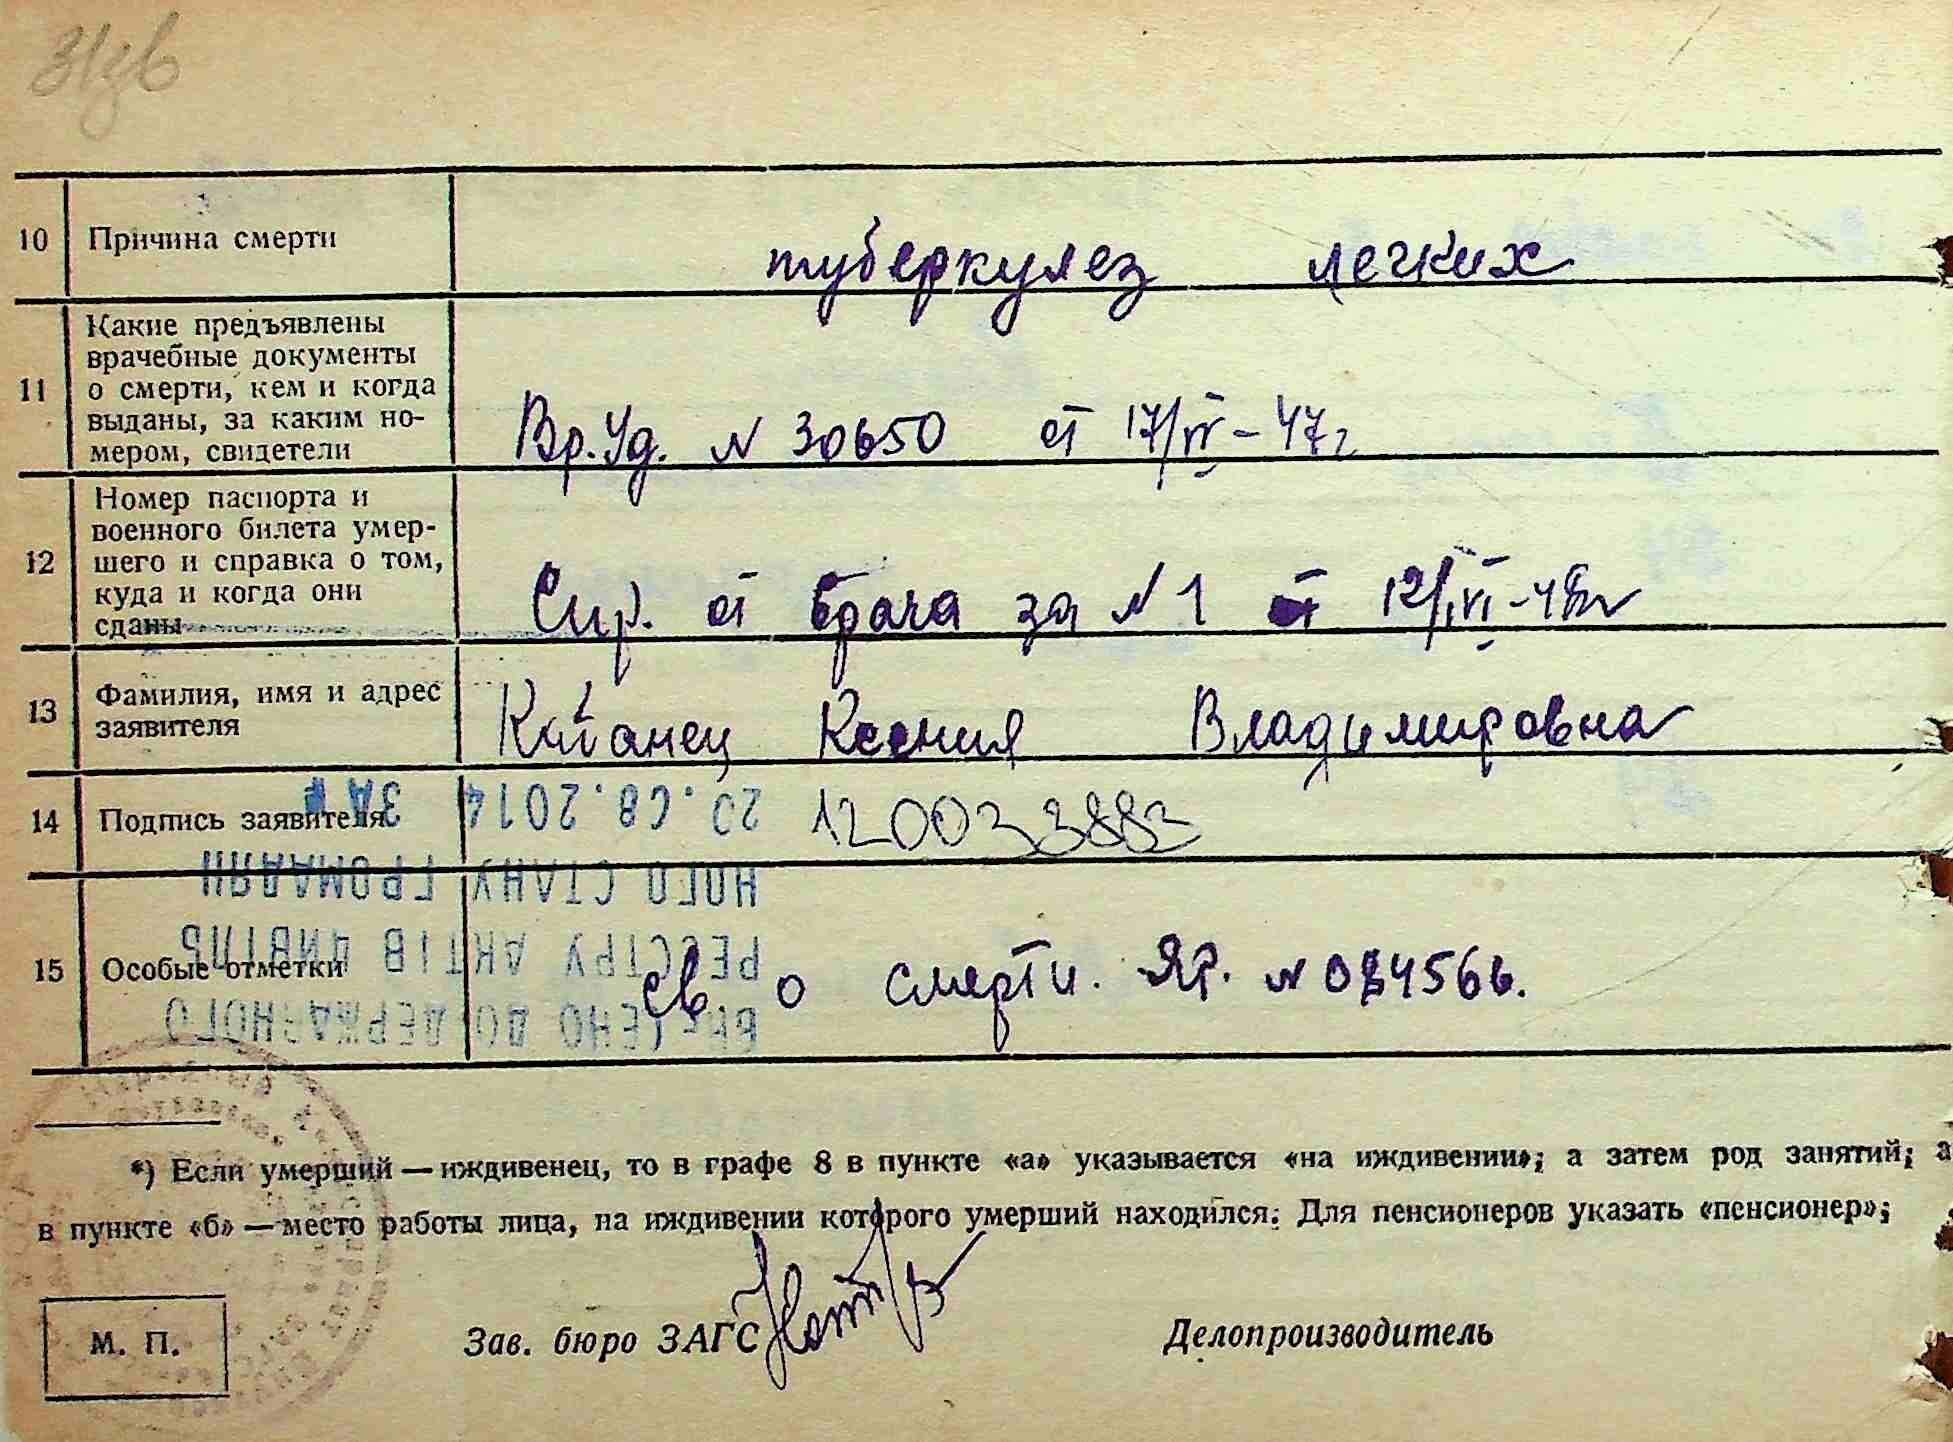 10 Причина смерти туберкулез легких
11 Какие предъявлены
врачебные документы
о смерти, кем и когда
выданы, за каким но-
мером, свидетели
Вр. Уд. N 30650 от 17/VI-47г
12 Номер паспорта и
военного билета умер-
шего и справка о том,
куда и когда они
сданы
от Врача за N 1 от
13 Фамилия, имя и адрес
заявителя
Ксения Владимировна
14 Подпись заявителя
12003 3883
15 Особые отметки
Св. о смерти. ЯР.
ВНЕСЕНО ДО ДЕРЖАВНОГО
РЕЄСТРУ АКТІВ ЦИВІЛЬ
НОГО СТАНУ ГРОМАДЯН
20.08.2014 ЗА №
*) Если умерший — иждивенец, то в графе 8 в пункте «а» указывается «на иждивении»; а затем род занятий; а
в пункте «б» — место работы лица, на иждивении которого умерший находился. Для пенсионеров указать «пенсионер»;
М. П.
Зав. бюро ЗАГС
Делопроизводитель